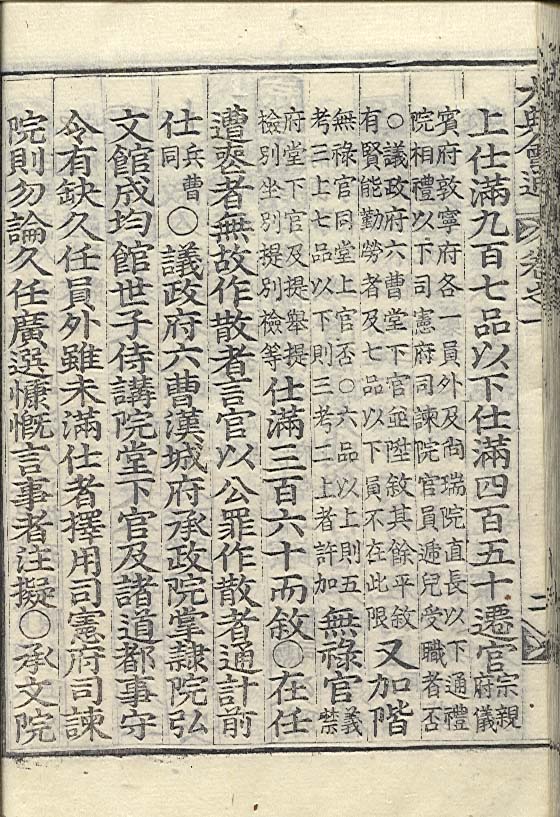 大典會通 卷之一 二
上仕滿九百七品以下仕滿四百五十遷官宗親府儀
賓府敦寧府各一員外及尙瑞院直長以下通禮
院相禮以下司憲府司諫院官員遞兒受職者否
○議政府六曹堂下官並陞敍其餘平敍
有賢能勤勞者及七品以下員不在此限
又加階
無祿官同堂上官否○六品以上則五
考三上七品以下則三考二上者許加
無祿官義禁
府堂下官及提擧提
檢別坐別提別檢等
仕滿三百六十而敍○在任
遭喪者無故作散者言官以公罪作散者通計前
仕兵曹同○議政府六曹漢城府承政院掌隷院弘
文館成均館世子侍講院堂下官及諸道都事守
令有缺久任員外雖未滿仕者擇用司憲府司諫
院則勿論久任廣選慷慨言事者注擬○承文院